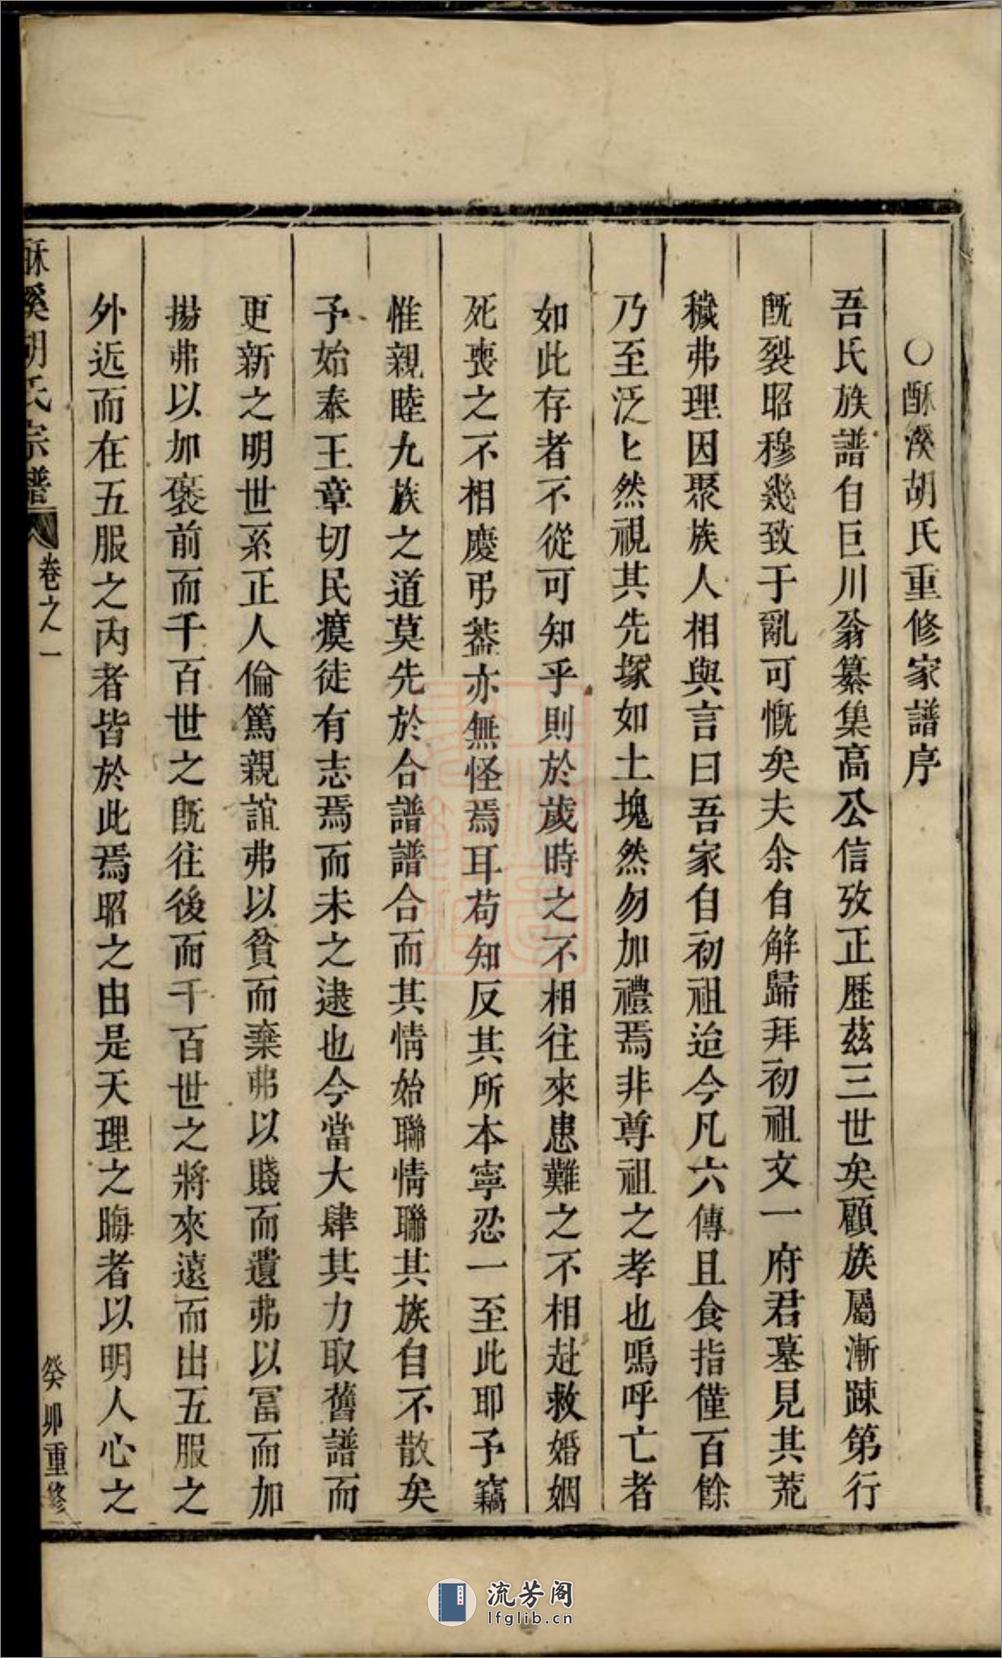 ○酥溪胡氏重修家譜序
吾氏族譜自巨川翁纂集高公信攷正歷茲三世矣顧族屬漸踈第行
既裂昭穆幾致于亂可慨矣夫余自解歸拜初祖文一府君墓見其荒
穢弗理因聚族人相與言曰吾家自初祖迨今凡六傳且食指僅百餘
乃至泛〻然視其先塚如土塊然勿加禮焉非尊祖之孝也嗚呼亡者
如此存者不從可知乎則於歲時之不相往來患難之不相赴救婚姻
死喪之不相慶弔葢亦無怪焉耳苟知反其所本寧忍一至此耶予竊
惟親睦九族之道莫先於合譜譜合而其情始聯情聯其族自不散矣
予始奉王章切民瘼徒有志焉而未之逮也今當大肆其力取舊譜而
更新之明世系正人倫篤親誼弗以貧而棄弗以賤而遺弗以冨而加
揚弗以加褒前而千百世之既往後而千百世之將來遠而出五服之
外近而在五服之內者皆於此焉昭之由是天理之晦者以明人心之
酥溪胡氏宗譜 卷之一 癸卯重修
流芳阁
lfglib.cn